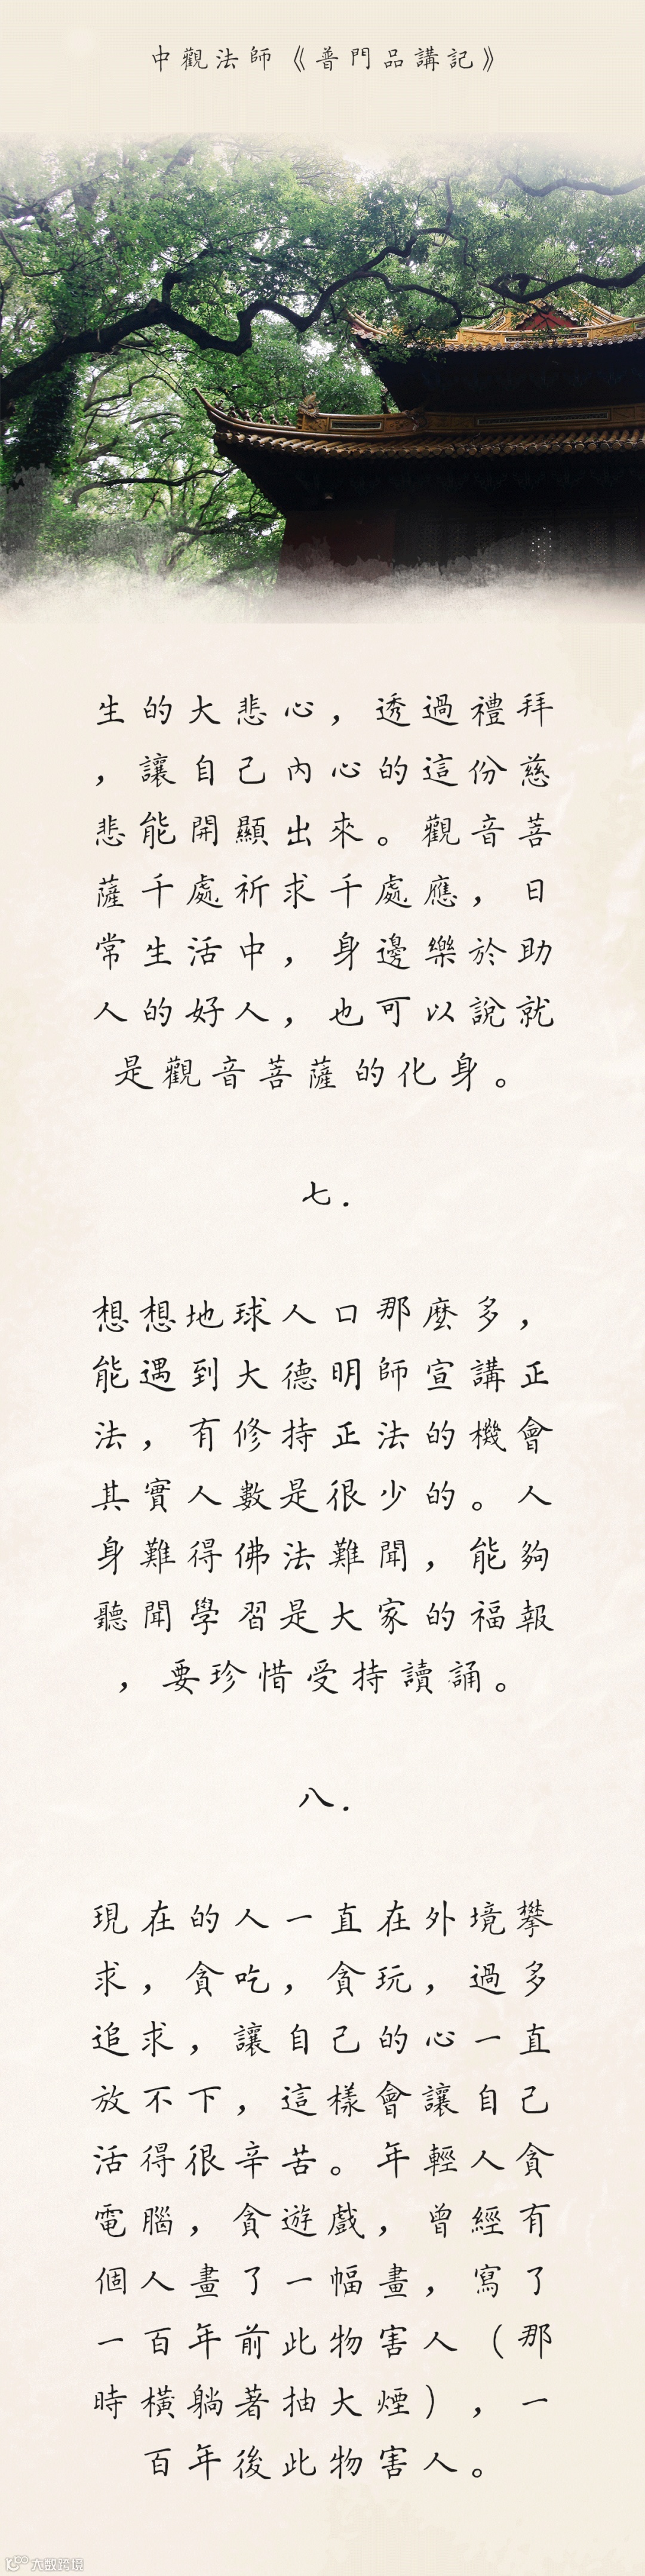 中觀法師《普門品講記》
生的大悲心，透過禮拜
，讓自己內心的這份慈
悲能開顯出來。觀音菩
薩千處祈求千處應，日
常生活中，身邊樂於助
人的好人，也可以說就
是觀音菩薩的化身。
七.
想想地球人口那麼多，
能遇到大德明師宣講正
法，有修持正法的機會
其實人數是很少的。人
身難得佛法難聞，能夠
聽聞學習是大家的福報
，要珍惜受持讀誦。
八.
現在的人一直在外境攀
求，貪吃，貪玩，過多
追求，讓自己的心一直
放不下，這樣會讓自己
活得很辛苦。年輕人貪
電腦，貪遊戲，曾經有
個人畫了一幅畫，寫了
一百年前此物害人（那
時橫躺著抽大煙），一
百年後此物害人。
大數跨境